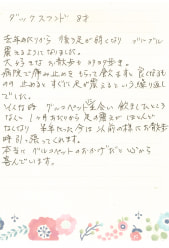 ダックスフンド 8才
去年あたりから 後ろ足が弱くなり プルプル
震えるようになりました。
大好きなお散歩も
病院で痛み止めをもらって飲ますと 良くなるものの
止めるとすぐに足が震えるという繰り返し
でした。
そんな時 グルコペットに出会い 飲ましたところ
なんと 1ヶ月あたりから足の震えがほとんど
なくなり 半年たった今は以前の様にお散歩
時引っ張ってくれます。
本当にグルコペットのおかげだと心から
喜んでいます。